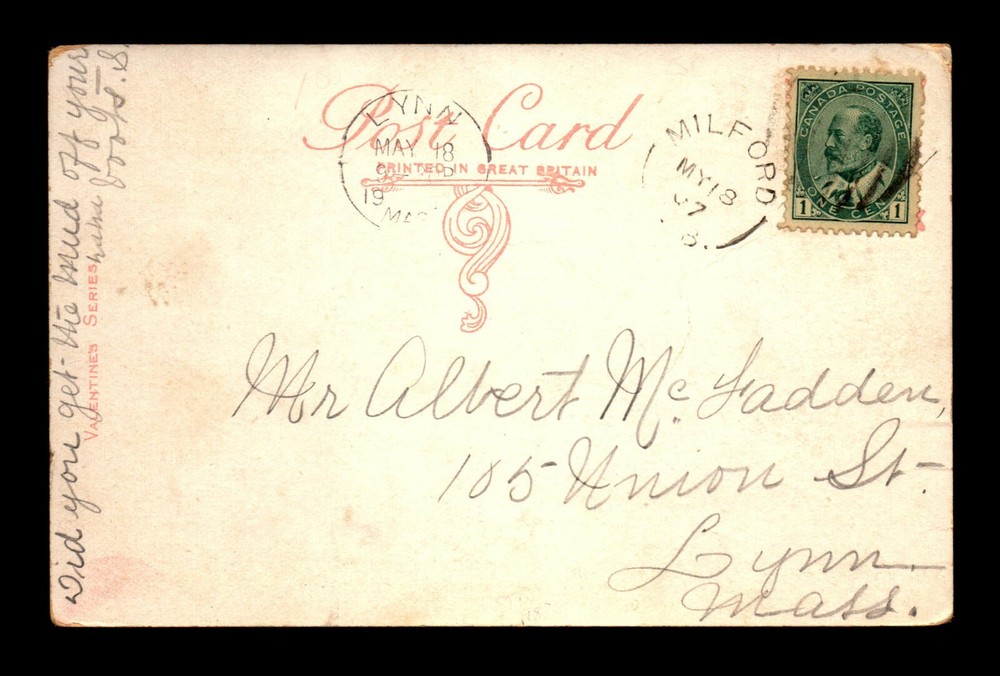 Post Card
PRINTED IN GREAT BRITAIN
LYNN
MAY 18
19
MASS
MILFORD
MY 18
07
B.
CANADA POSTAGE
ONE CENT
1 1
Did you get the mud off your
boots. S.
VALENTINE'S SERIES
Mr Albert McFadden,
185 Union St
Lynn.
Mass.